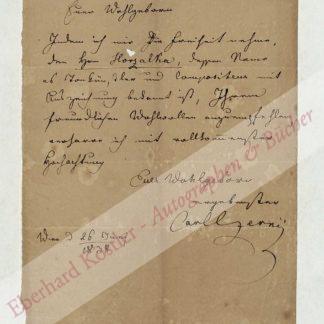 Euer Wohlgeborn
Indem ich mir die Freiheit nehme,
den Hrn Horzalka, dessen Name
als Tonkünstler und Compositeur mit
Auszeichnung bekannt ist, Ihrem
freundlichen Wohlwollen anzuempfehlen
verharre ich mit vollkommenster
Hochachtung
Euer Wohlgeborn
ergebenster
Carl Czerny
Wien d 26 Juni
Eberhard Köstler - Autographen & Bücher